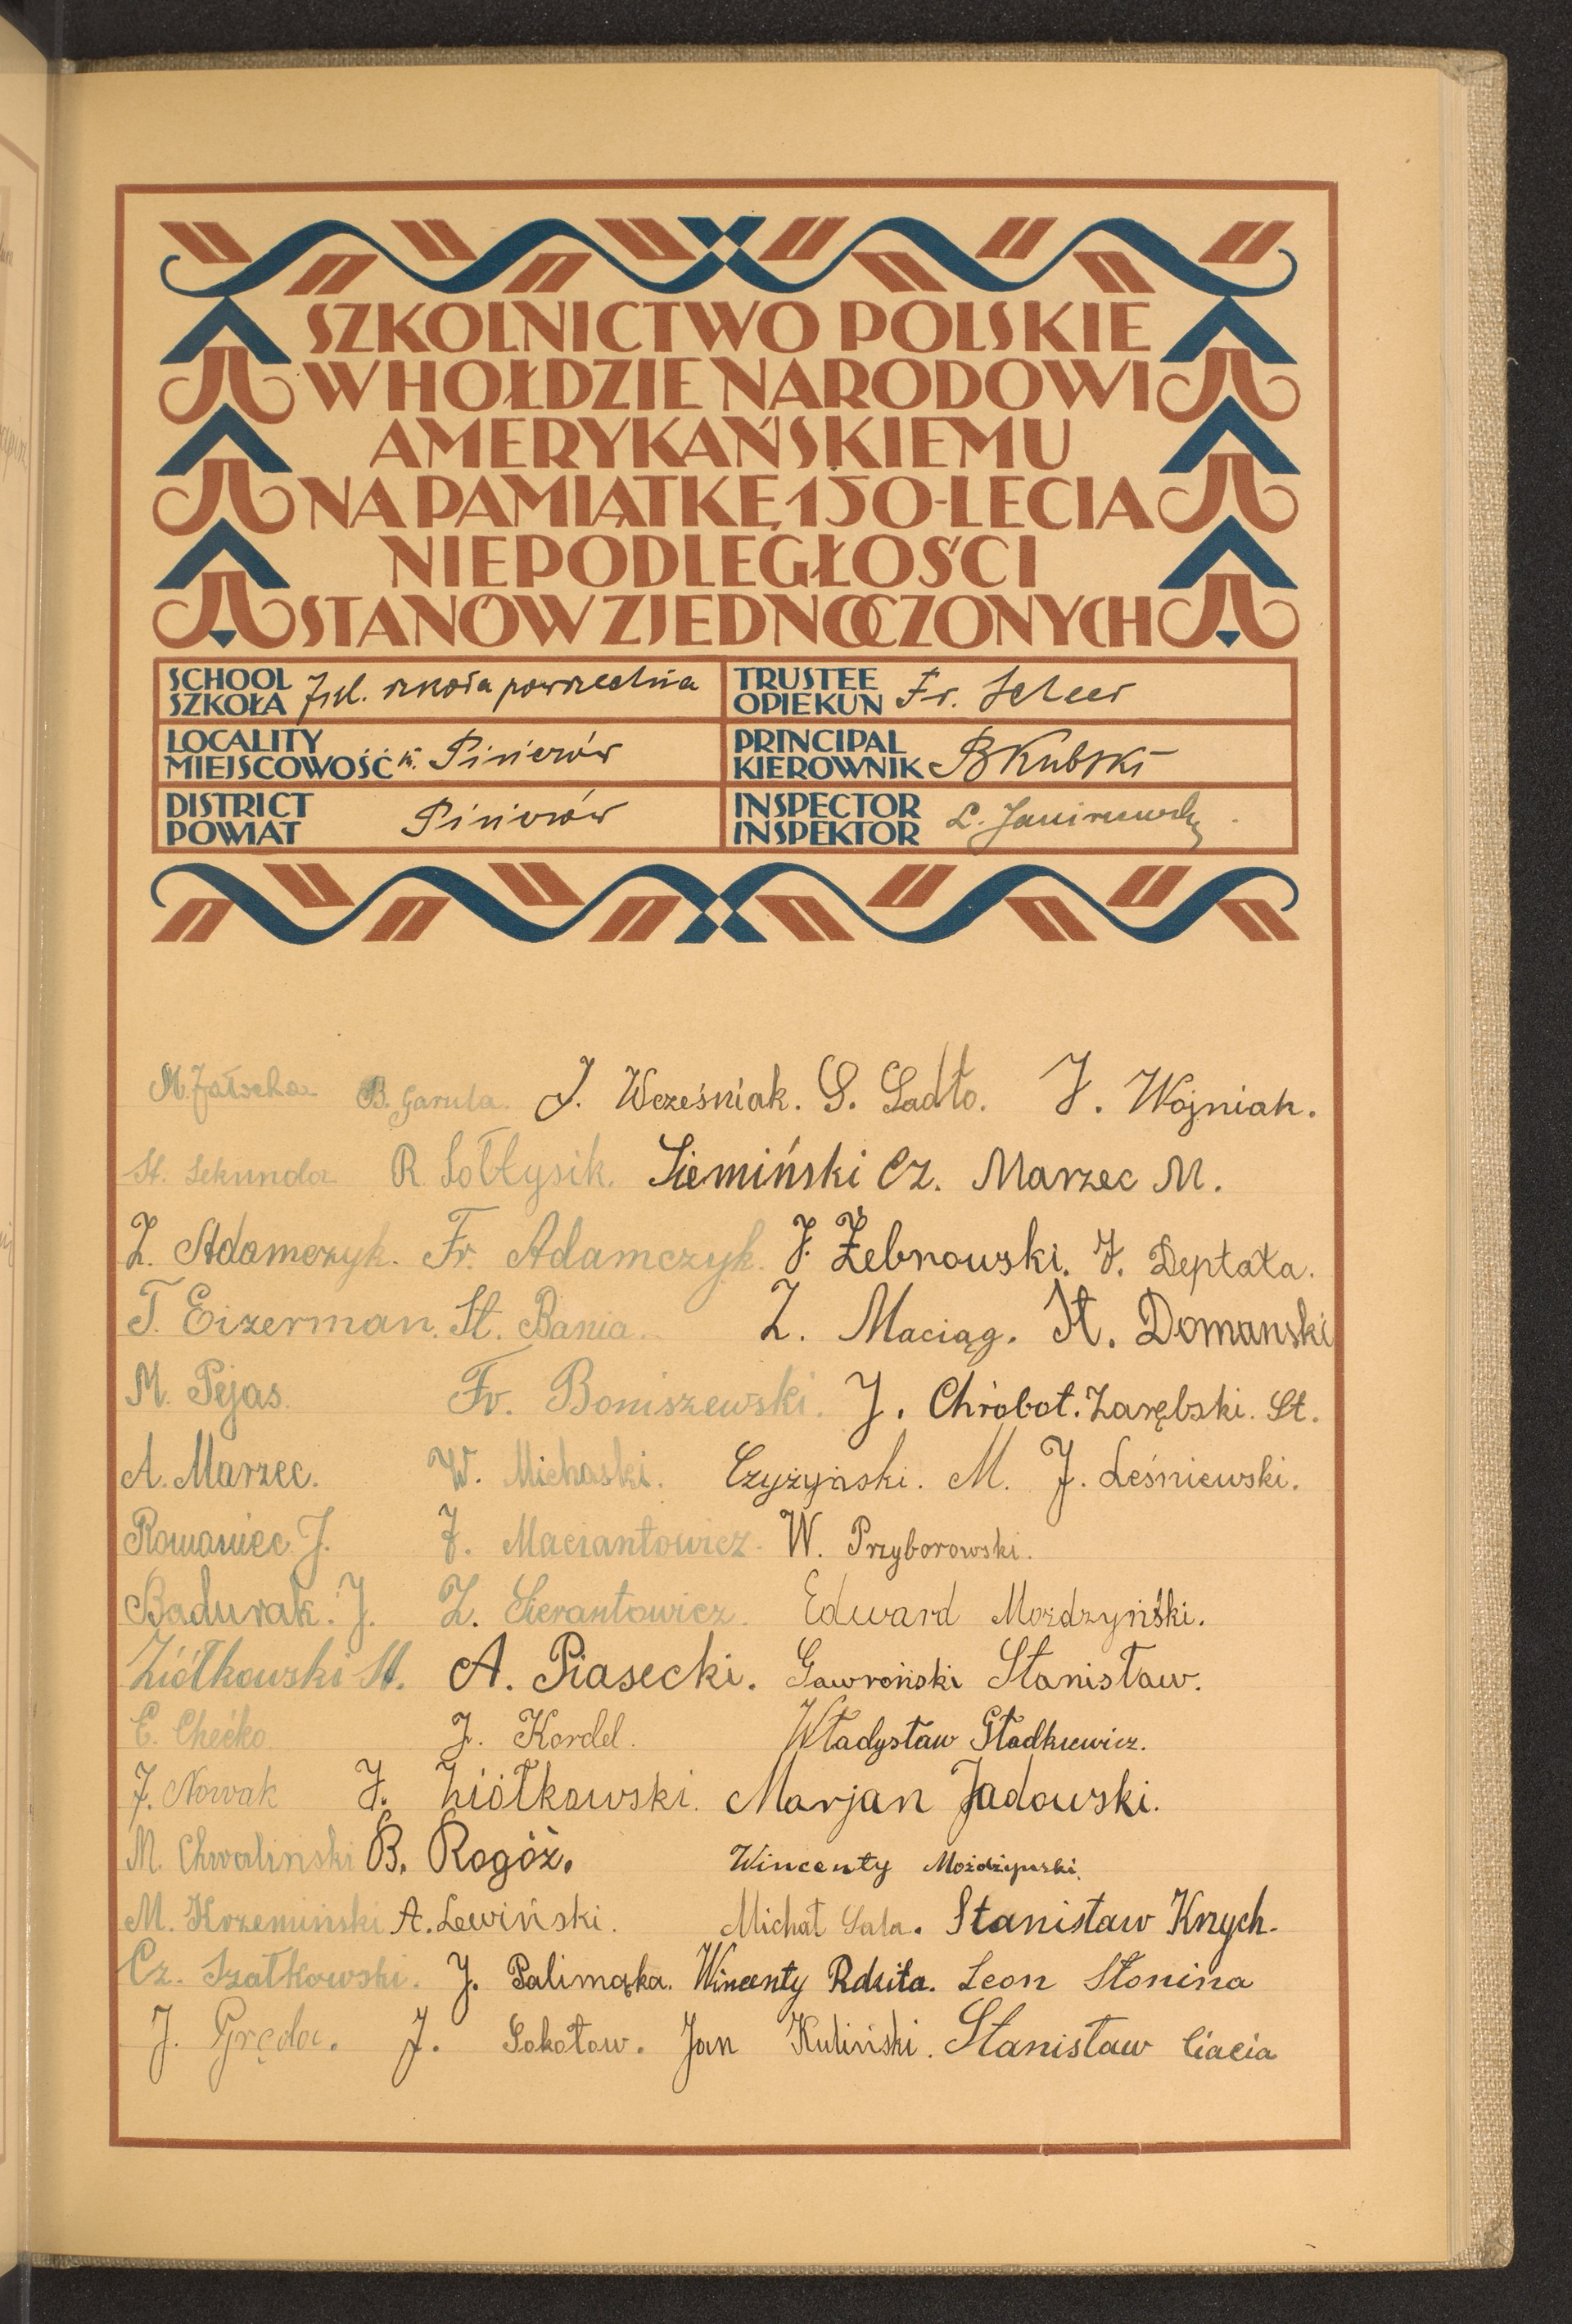 SZKOLNICTWO POLSKIE
W HOŁDZIE NARODOWI
AMERYKAŃSKIEMU
NA PAMIĄTKĘ 150-LECIA
NIEPODLEGŁOŚCI
STANÓW ZJEDNOCZONYCH
SCHOOL
SZKOŁA 7 kl. szkoła powszechna
TRUSTEE
OPIEKUN Fr.
LOCALITY
MIEJSCOWOŚĆ m. Pińczów
PRINCIPAL
KIEROWNIK B Kubski
DISTRICT
POWIAT Pińczów
INSPECTOR
INSPEKTOR L.
M. B. Garula. J. Wcześniak. S. Sadło. J. Wojniak.
St. Sekunda R. Sołtysik. Siemiński Cz. Marzec M.
Z. Adamczyk. Fr. Adamczyk. J. Żebrowski. J. Deptała.
T. Eizerman. St. Bania. Z. Maciąg. St. Domanski
M. Pejas. Fr. Boniszewski. J. Chrobot. Zarębski. St.
A. Marzec. W. Michaski. Czyżyński. M. J. Leśniewski.
Romaniec J. J. Maciantowicz. W. Przyborowski.
Badurak. J. Z. Sierantowicz. Edward Mozdzyński.
Ziółkowski St. A. Piasecki. Gawroński Stanisław.
E. Chećko J. Kordel. Władysław Gładkiewicz.
J. Nowak J. Ziółkowski. Marjan Jadowski.
M. Chwaliński B. Rogóż. Wincenty Możdżyński.
M. Krzemiński A. Lewiński. Michał Sala. Stanisław Knych.
Cz. Szałkowski. J. Palimąka. Wincenty Rdzita. Leon Słonina
J. Gręda. J. Sokołow. Jan Kuliński. Stanisław Ciacia